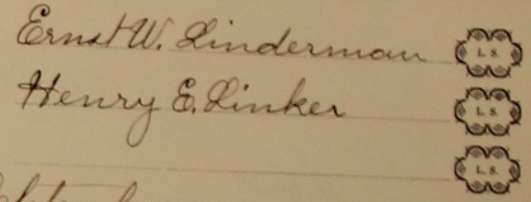 Ernst W. Linderman L. S.
Henry E. Linker L. S.
L. S.